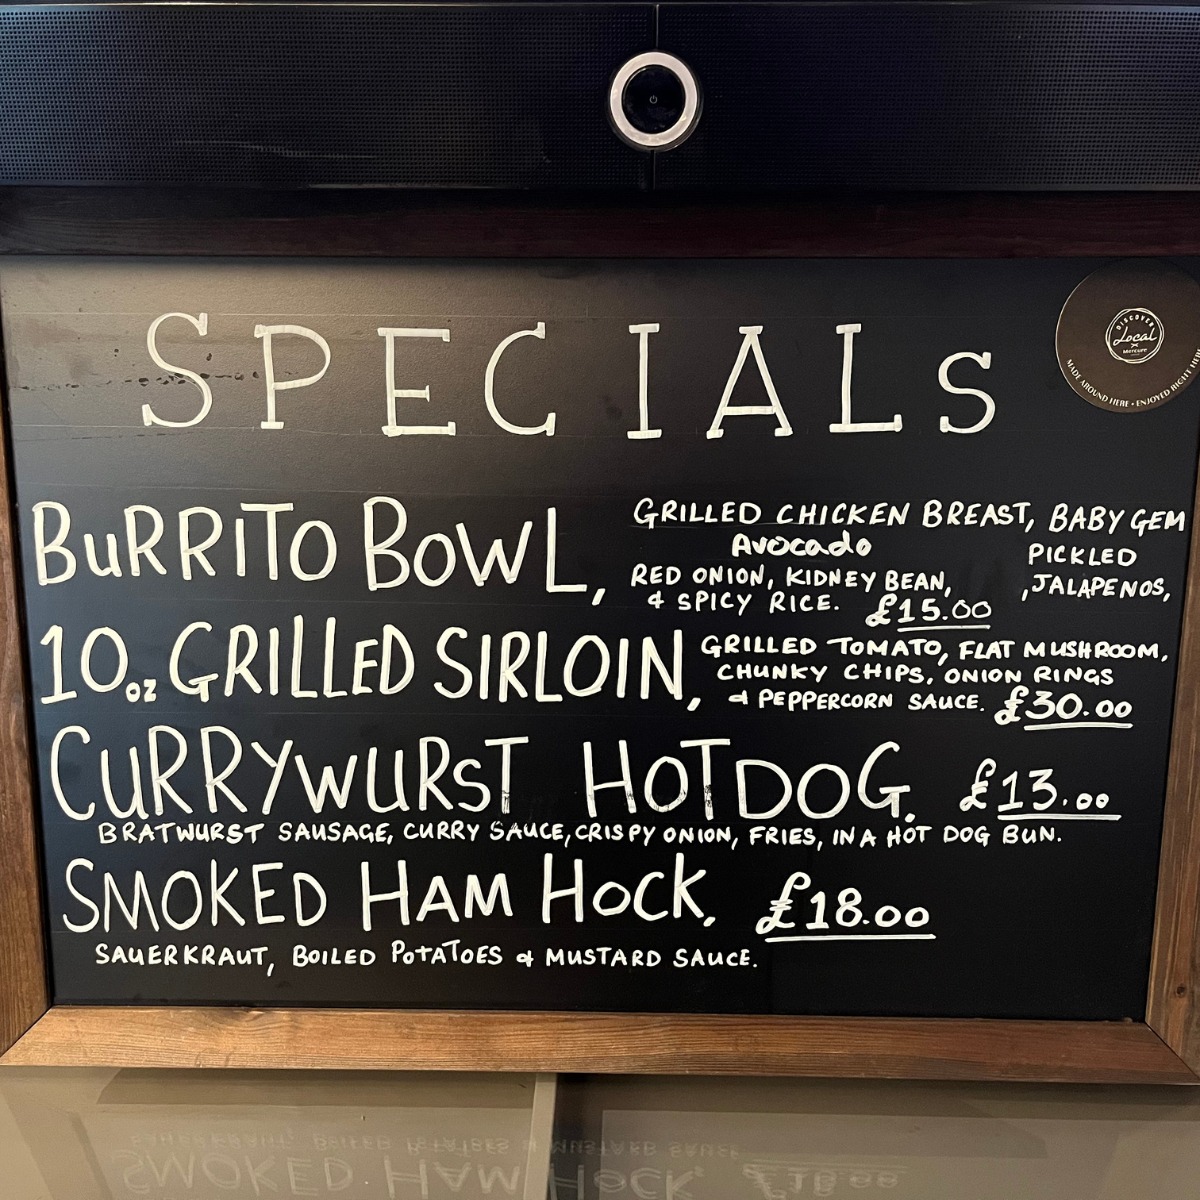 SPECIALS
DISCOVER
Local
Mercure
MADE AROUND HERE • ENJOYED RIGHT HERE
BURRITO BOWL,
GRILLED CHICKEN BREAST, BABY GEM
Avocado PICKLED
RED ONION, KIDNEY BEAN, ,JALAPENOS,
& SPICY RICE. £15.00
10oz GRILLED SIRLOIN,
GRILLED TOMATO, FLAT MUSHROOM,
CHUNKY CHIPS, ONION RINGS
& PEPPERCORN SAUCE. £30.00
CURRYWURST HOTDOG. £13.00
BRATWURST SAUSAGE, CURRY SAUCE, CRISPY ONION, FRIES, IN A HOT DOG BUN.
SMOKED HAM HOCK. £18.00
SAUERKRAUT, BOILED POTATOES & MUSTARD SAUCE.